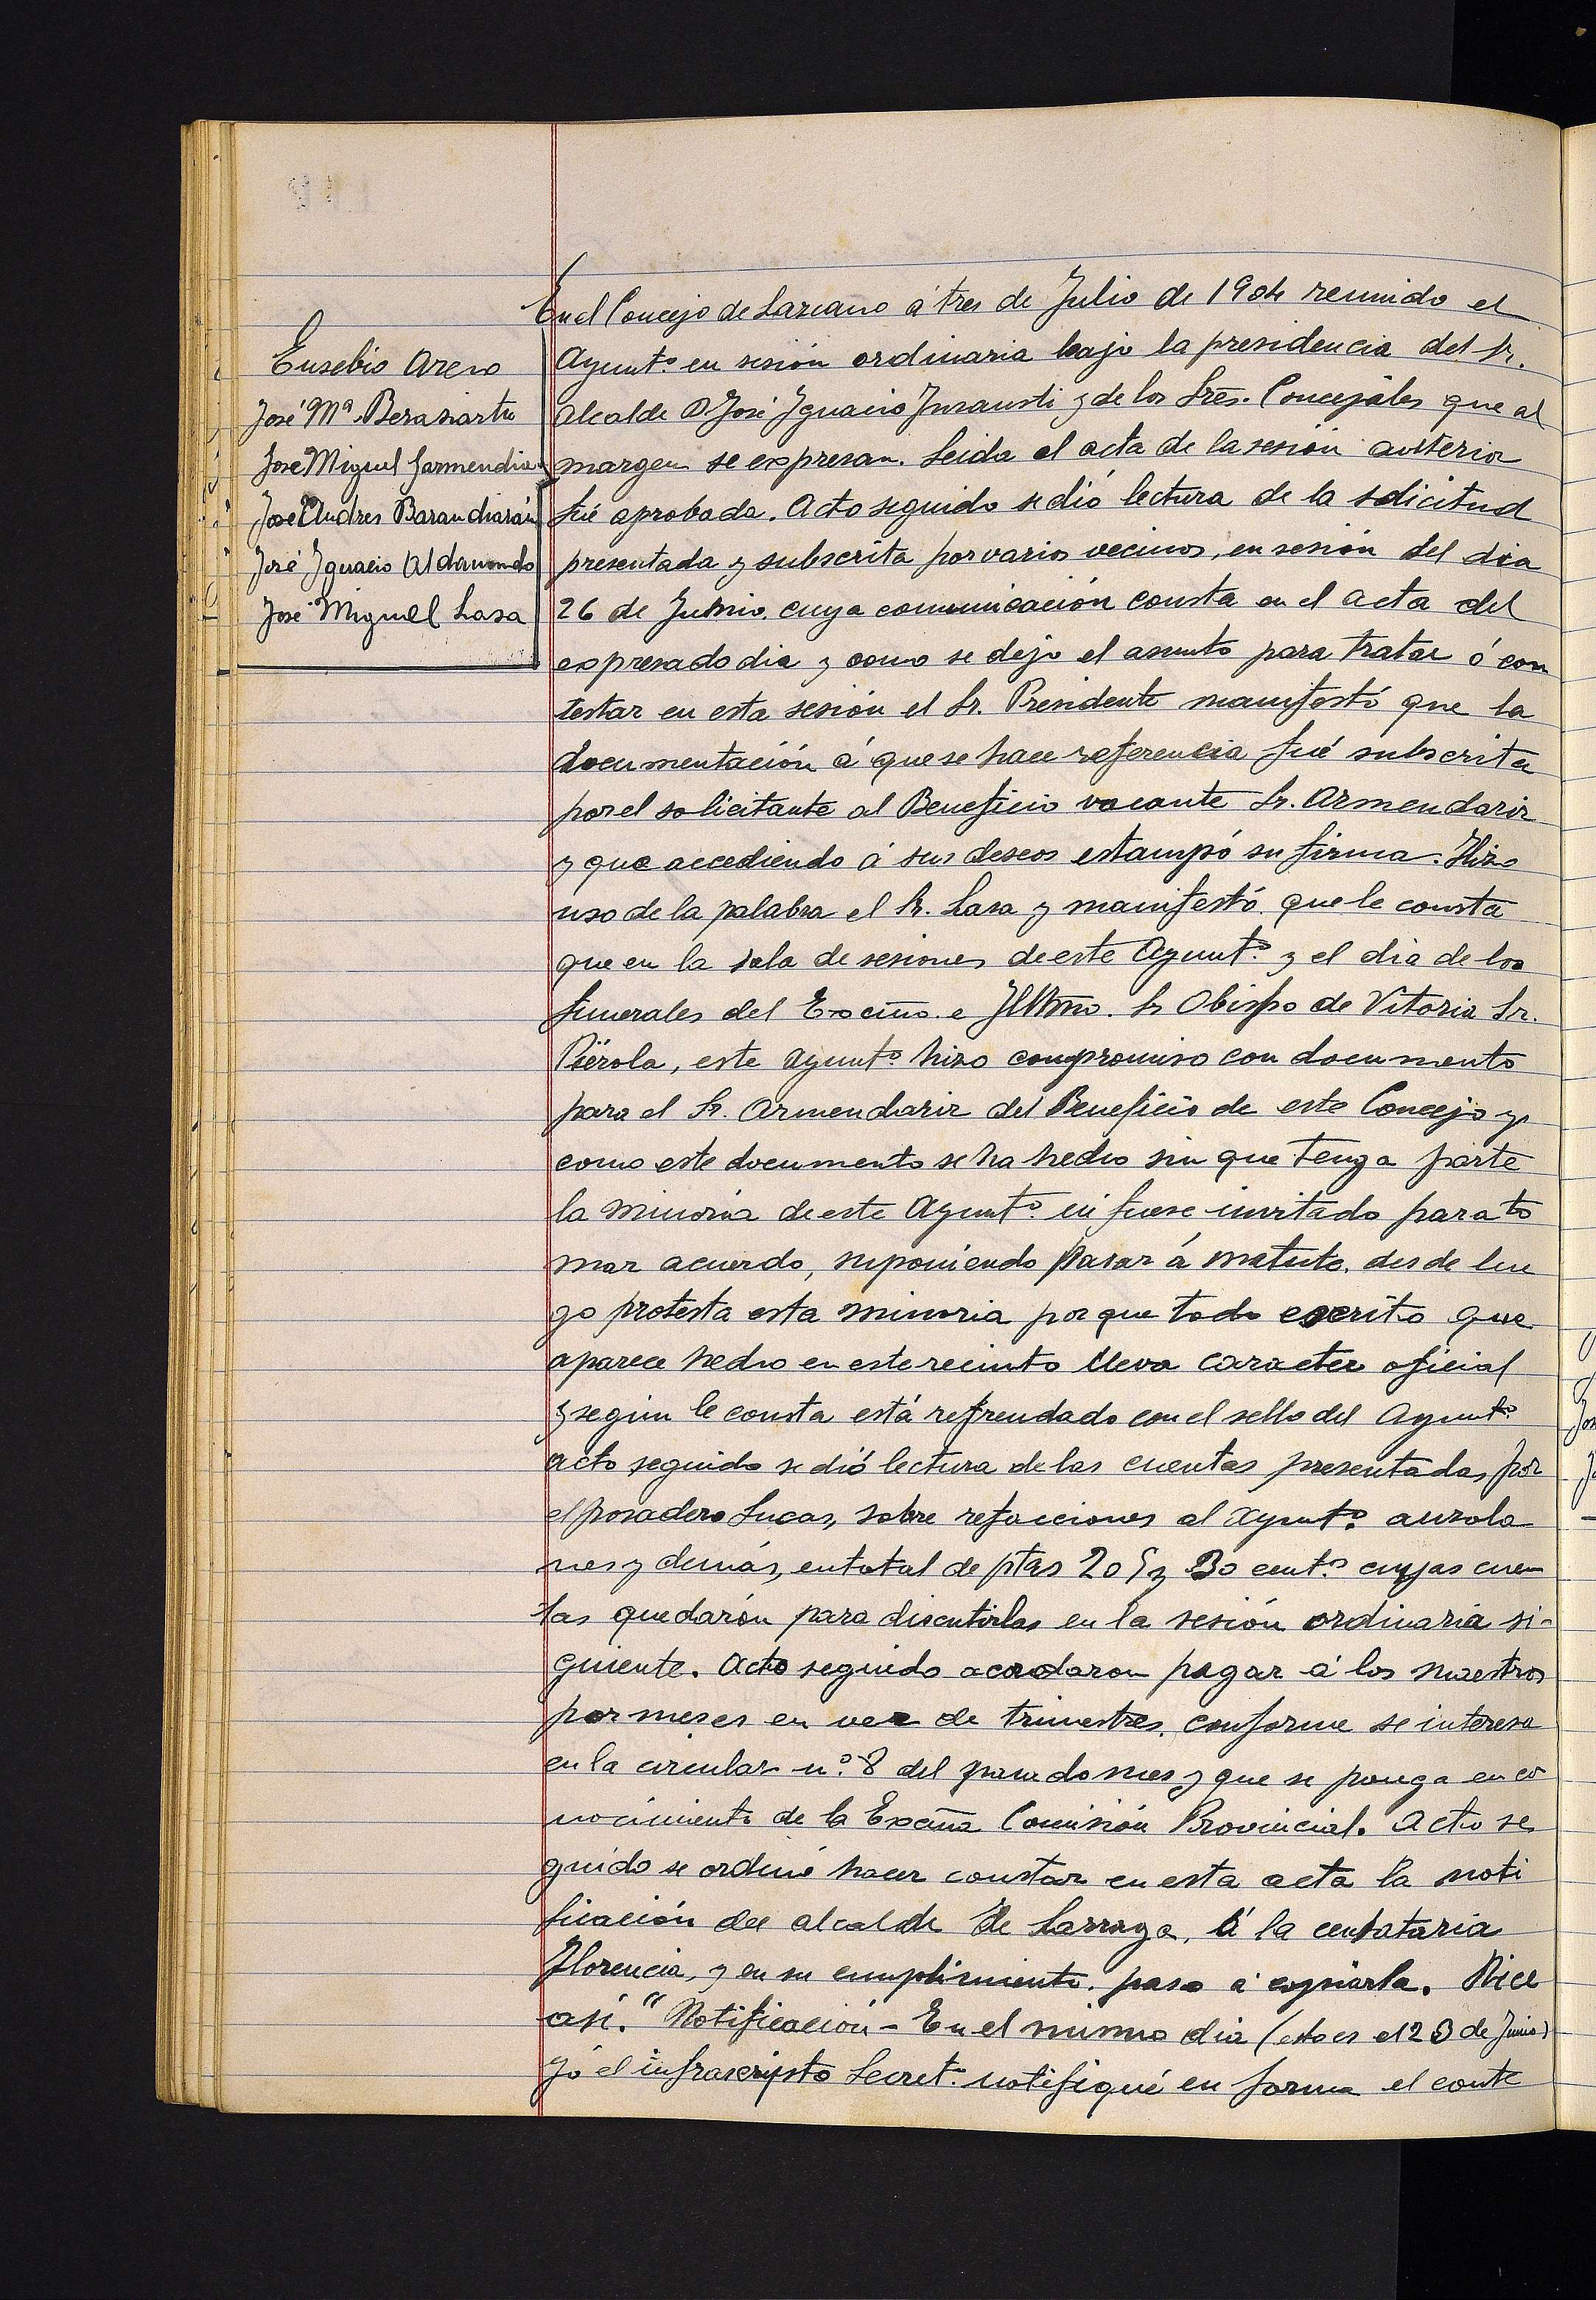 Eusebio Areso
José Mª Berasiartu
José Miguel Garmendia
José Andres Barandiarán
José Ignacio Aldanondo
José Miguel Lasa
En el Concejo de Lazcano á tres de Julio de 1904 reunido el
Ayuntº en sesión ordinaria bajo la presidencia del Sr.
Alcalde D José Ignacio Insausti y de los Sres. Concejales que al
margen se expresan. Leida el acta de la sesión anterior
fué aprobada. Acto seguido se dió lectura de la solicitud
presentada y subscrita por varios vecinos, en sesión del dia
26 de Junio, cuya comunicación consta en el acta del
expresado dia y como se dejo el asunto para tratar ó con
testar en esta sesión el Sr. Presidente manifestó que la
documentación á que se hace referencia fué subscrita
por el solicitante al Beneficio vacante Sr. Armendariz
y que accediendo á sus deseos estampó su firma. Hizo
uso de la palabra el Sr. Lasa y manifestó que le consta
que en la sala de sesiones de este Ayuntº y el dia de los
funerales del Excmo. e Illtmo. Sr Obispo de Vitoria Sr.
Piérola, este Ayuntº hizo compromiso con documento
para el Sr. Armendariz del Beneficio de este Concejo y
como este documento se ha hecho sin que tenga parte
la minoria de este Ayuntº ni fuese invitado para to
mar acuerdo, suponiendo pasar á matute, desde lue
go protesta esta minoria por que todo escrito que
aparece hecho en este recinto lleva caracter oficial
y según le consta está refrendado con el sello del Ayuntº
Acto seguido se dió lectura de las cuentas presentadas por
el posadero Lucas, sobre refacciones al Ayuntº auzola
nes y demás, en total de ptas 205 y 30 centº cuyas cuen
tas quedarón para discutirlas en la sesión ordinaria si-
guiente. Acto seguido acordaron pagar á los maestros
por meses en vez de trimestres, conforme se interesa
en la circular nº 8 del pasado mes y que se ponga en co
nocimiento de la Excma Comisión Provincial. Acto se
guido se ordenó hacer constar en esta acta la noti
ficación del alcalde de Larraga, á la
Florencia, y en su cumplimiento, paso á copiarla. Dice
asi. "Notificación - En el mismo dia (esto es el 23 de Junio)
yó el infrascripto Secretº notifiqué en forma el conte